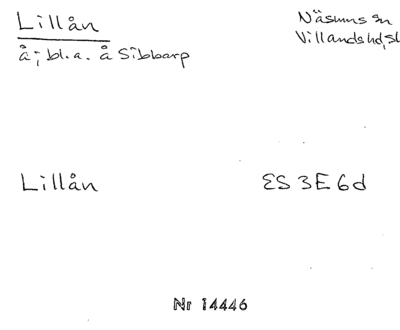 Lillån
Näsums sn
Villands hd, Sk
å; bl.a. å Sibbarp
Lillån
ES 3E6d
Nr 14446